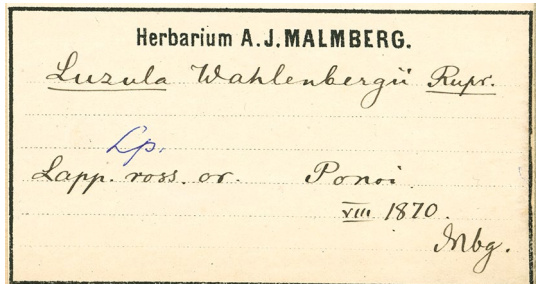 Herbarium A. J. MALMBERG.
Luzula Wahlenbergii Rupr.
Lp.
Lapp. ross. or. Ponoi.
VIII 1870.
Mbg.